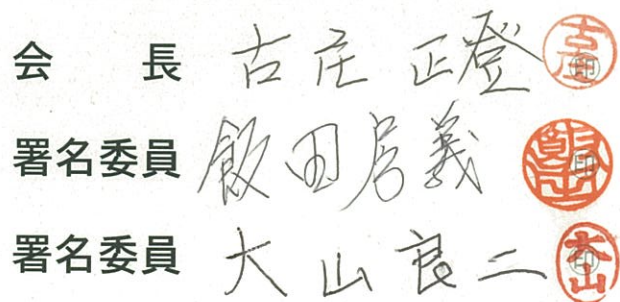 会 長 古庄 正登 印
署名委員 飯田房義 印
署名委員 大山良二 印